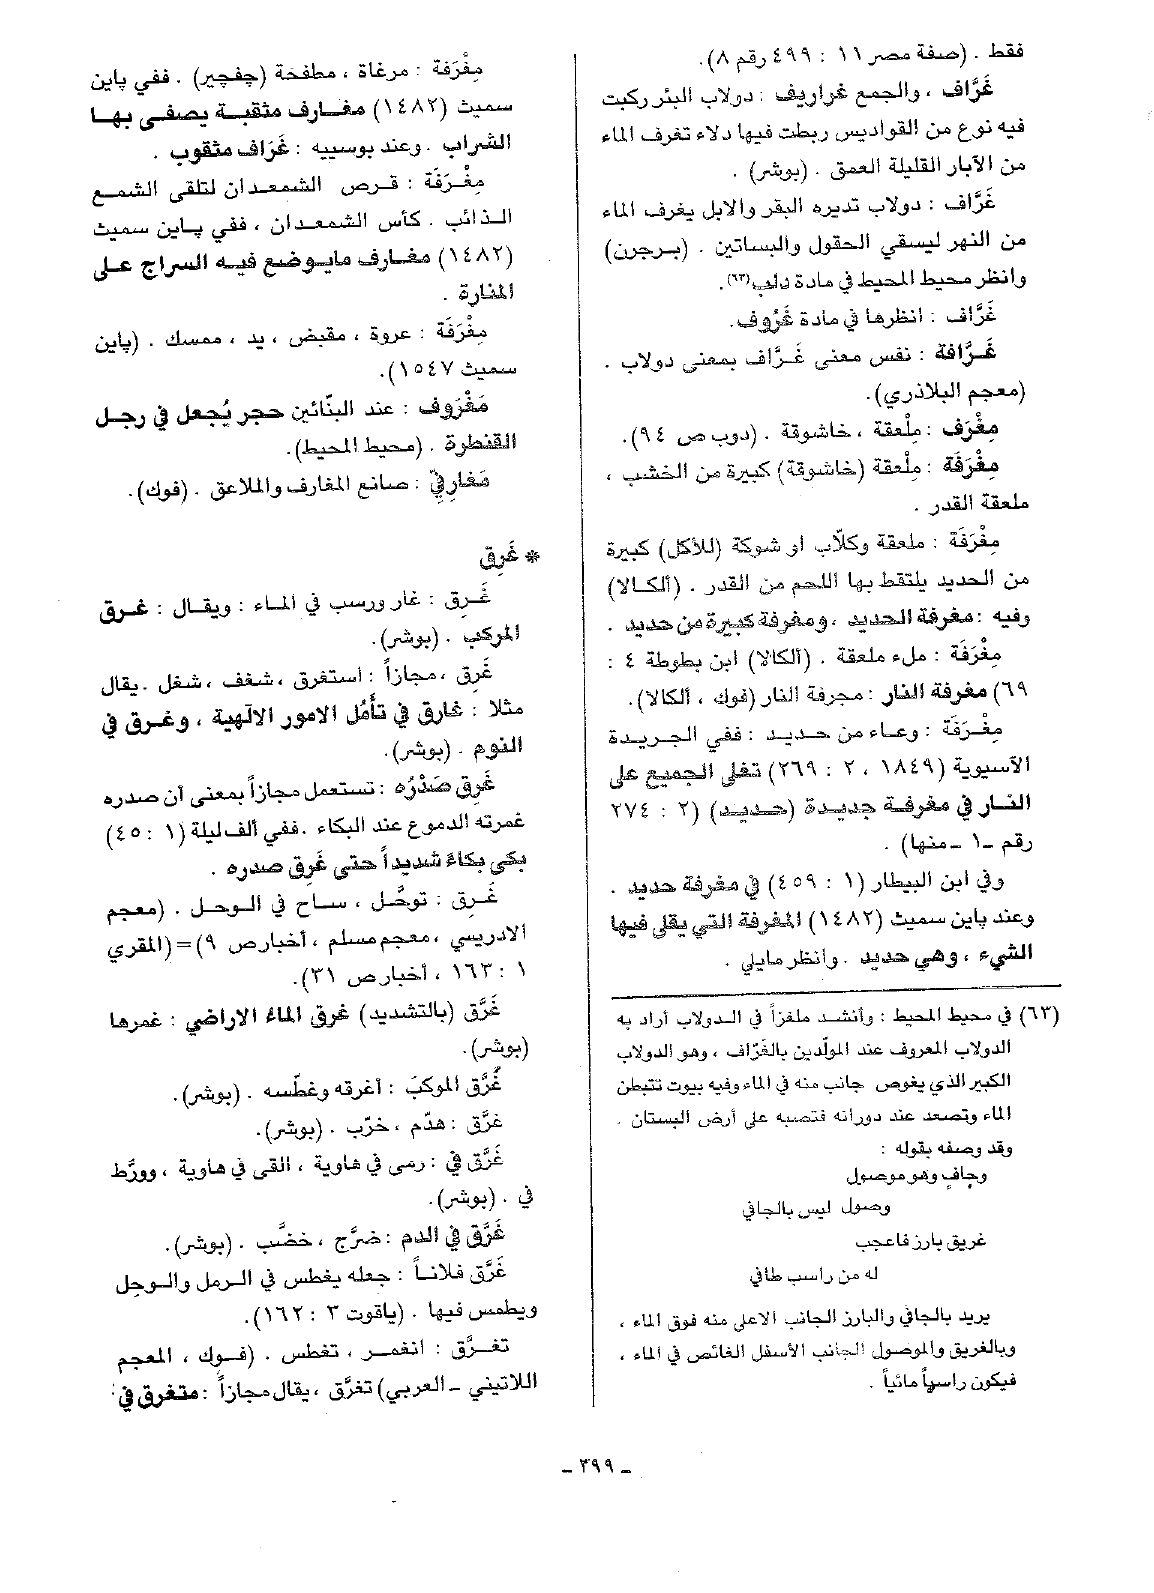 فقط . (صفة مصر ١١ : ٤٩٩ رقم ٨).
غَرَّاف ، والجمع غراريف : دولاب البئر ركبت
فيه نوع من القواديس ربطت فيها دلاء تغرف الماء
من الآبار القليلة العمق . (بوشر) .
غَرَّاف : دولاب تديره البقر والابل يغرف الماء
من النهر ليسقي الحقول والبساتين . (برجرن)
وانظر محيط المحيط في مادة دلب(٦٣).
غَرَّاف : انظرها في مادة غَرُوف.
غَرَّافة : نفس معنى غَرَّاف بمعنى دولاب .
(معجم البلاذري).
مِغْرَف : مِلْعقة ، خاشوقة . (دوب ص ٩٤).
مِغْرَفَة : مِلْعقة (خاشوقة) كبيرة من الخشب ،
ملعقة القدر .
مِغْرَفَة : ملعقة وكلّاب او شوكة (للأكل) كبيرة
من الحديد يلتقط بها اللحم من القدر . (ألكالا)
وفيه : مغرفة الحديد ، ومغرفة كبيرة من حديد .
مِغْرَفَة : ملء ملعقة . (ألكالا) ابن بطوطة ٤ :
٦٩) مغرفة النار : مجرفة النار (فوك ، ألكالا).
مِغْرَفَة : وعاء من حديد : ففي الجريدة
الآسيوية (١٨٤٩ ، ٢ : ٢٦٩) تغلى الجميع على
النار في مغرفة جديدة (حديد) (٢ : ٢٧٤
رقم ـ١ ـ منها) .
وفي ابن البيطار (١ : ٤٥٩) في مغرفة حديد .
وعند باين سميث (١٤٨٢) المغرفة التي يقلى فيها
الشيء ، وهي حديد . وانظر مايلي .
(٦٣) في محيط المحيط : وأنشد ملغزاً في الدولاب أراد به
الدولاب المعروف عند المولّدين بالغَرّاف ، وهو الدولاب
الكبير الذي يغوص جانب منه في الماء وفيه بيوت تتبطن
الماء وتصعد عند دورانه فتصبه على أرض البستان .
وقد وصفه بقوله :
وجافٍ وهو موصول
وصول ليس بالجافي
غريق بارز فاعجب
له من راسب طافي
يريد بالجافي والبارز الجانب الاعلى منه فوق الماء ،
وبالغريق والموصول الجانب الأسفل الغائص في الماء ،
فيكون راسياً مائياً .
مِغْرَفة : مرغاة ، مطفحة (چفچير) . ففي پاين
سميث (١٤٨٢) مغارف مثقبة يصفى بها
الشراب . وعند بوسييه : غَرَاف مثقوب .
مِغْرَفَة : قرص الشمعدان لتلقى الشمع
الذائب . كأس الشمعدان ، ففي پاين سميث
(١٤٨٢) مغارف مايوضع فيه السراج على
المنارة .
مِغْرَفَة : عروة ، مقبض ، يد ، ممسك . (پاين
سميث ١٥٤٧).
مَغْرُوف : عند البنّائين حجر يُجعل في رجل
القنطرة . (محيط المحيط).
مَغَارِفيّ : صانع المغارف والملاعق . (فوك).
* غَرِق
غَرِق : غار ورسب في الماء : ويقال : غرق
المركب . (بوشر).
غَرِق ، مجازاً : استغرق ، شغف ، شغل . يقال
مثلا : غارق في تأمُّل الامور الالهية ، وغرق في
النوم . (بوشر).
غَرِق صَدْرُه : تستعمل مجازاً بمعنى أن صدره
غمرته الدموع عند البكاء . ففي ألف ليلة (١ : ٤٥)
بكى بكاءً شديداً حتى غَرِق صدره .
غَرِق : توحَّل ، ساح في الوحل . (معجم
الادريسي ، معجم مسلم ، أخبار ص ٩)=(المقري
١ : ١٦٣ ، أخبار ص ٣١).
غَرَّق (بالتشديد) غرق الماء الاراضي : غمرها
(بوشر).
غَرَّق الموكبَ : أغرقه وغطّسه . (بوشر).
غرَّق : هدّم ، خرّب . (بوشر).
غَرَّق في : رمى في هاوية ، القى في هاوية ، وورَّط
في . (بوشر).
غَرَّق في الدم : ضرَّج ، خضَّب . (بوشر).
غَرَّق فلاناً : جعله يغطس في الرمل والوحل
ويطمس فيها . (ياقوت ٣ : ١٦٢).
تغرَّق : انغمر ، تغطس . (فوك ، المعجم
اللاتيني ـ العربي) تغرَّق ، يقال مجازاً : متغرق في :
ـ ٣٩٩ ـ